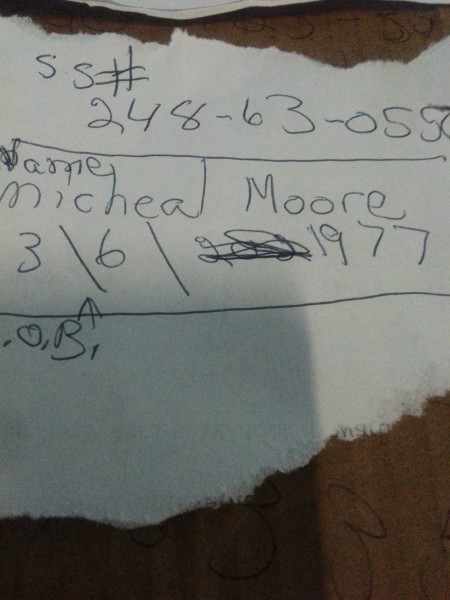 SS#
248-63-055
Name
Micheal Moore
3\6\ 1977
.O.B.